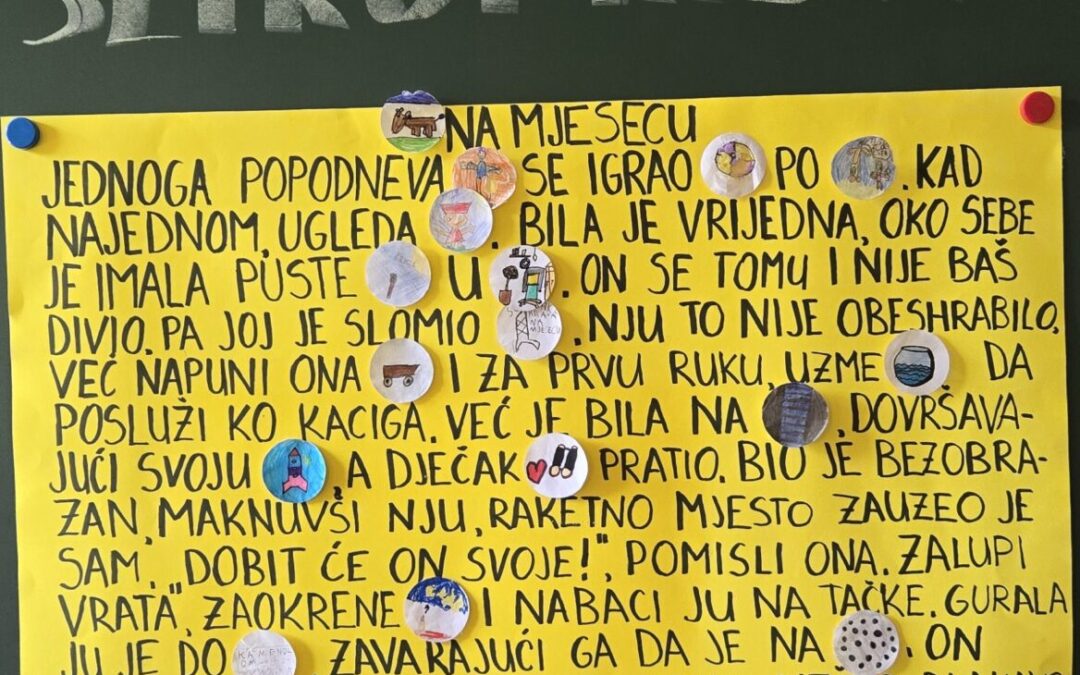 NA MJESECU
JEDNOGA POPODNEVA SE IGRAO PO . KAD
NAJEDNOM, UGLEDA . BILA JE VRIJEDNA, OKO SEBE
JE IMALA PUSTE U . ON SE TOMU I NIJE BAŠ
DIVIO, PA JOJ JE SLOMIO . NJU TO NIJE OBESHRABILO,
VEĆ NAPUNI ONA I ZA PRVU RUKU, UZME DA
POSLUŽI KO KACIGA. VEĆ JE BILA NA . DOVRŠAVA-
JUĆI SVOJU , A DJEČAK PRATIO. BIO JE BEZOBRA-
ZAN, MAKNUVŠI NJU, RAKETNO MJESTO ZAUZEO JE
SAM. "DOBIT ĆE ON SVOJE!", POMISLI ONA. ZALUPI
VRATA", ZAOKRENE I NABACI JU NA TAČKE. GURALA
JU JE DO ZAVARAJUĆI GA DA JE NA . ON